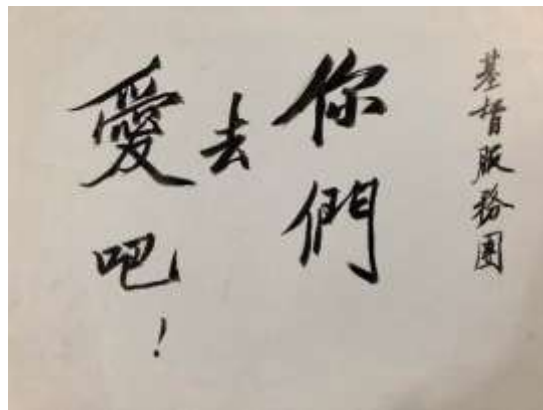 基督服務團
你們
去
愛吧！